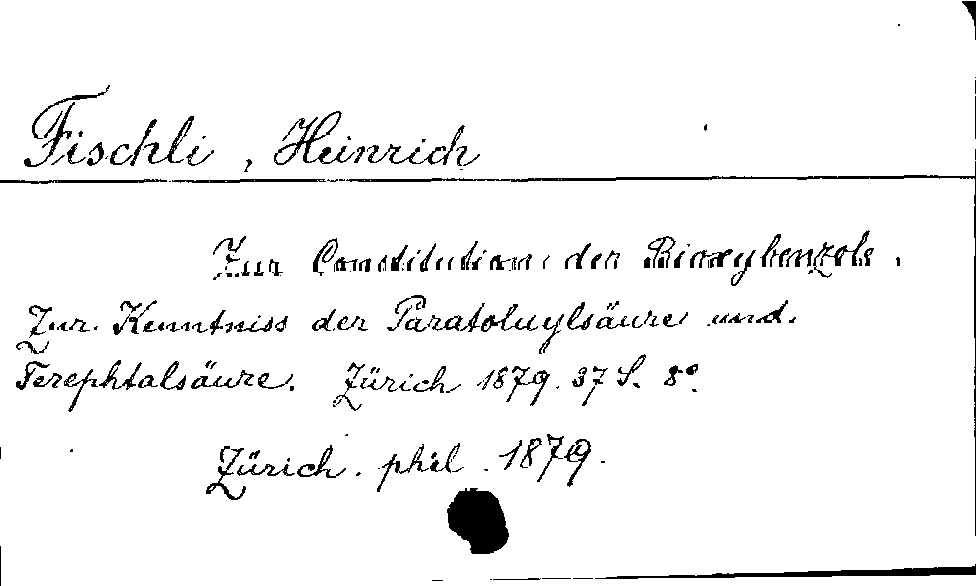 Fischli, Heinrich
Zur Constitution der Bioxybenzole.
Zur Kenntniss der Paratoluylsäure und
Terephtalsäure. Zürich 1879. 37 S. 8°.
Zürich. phil. 1879.